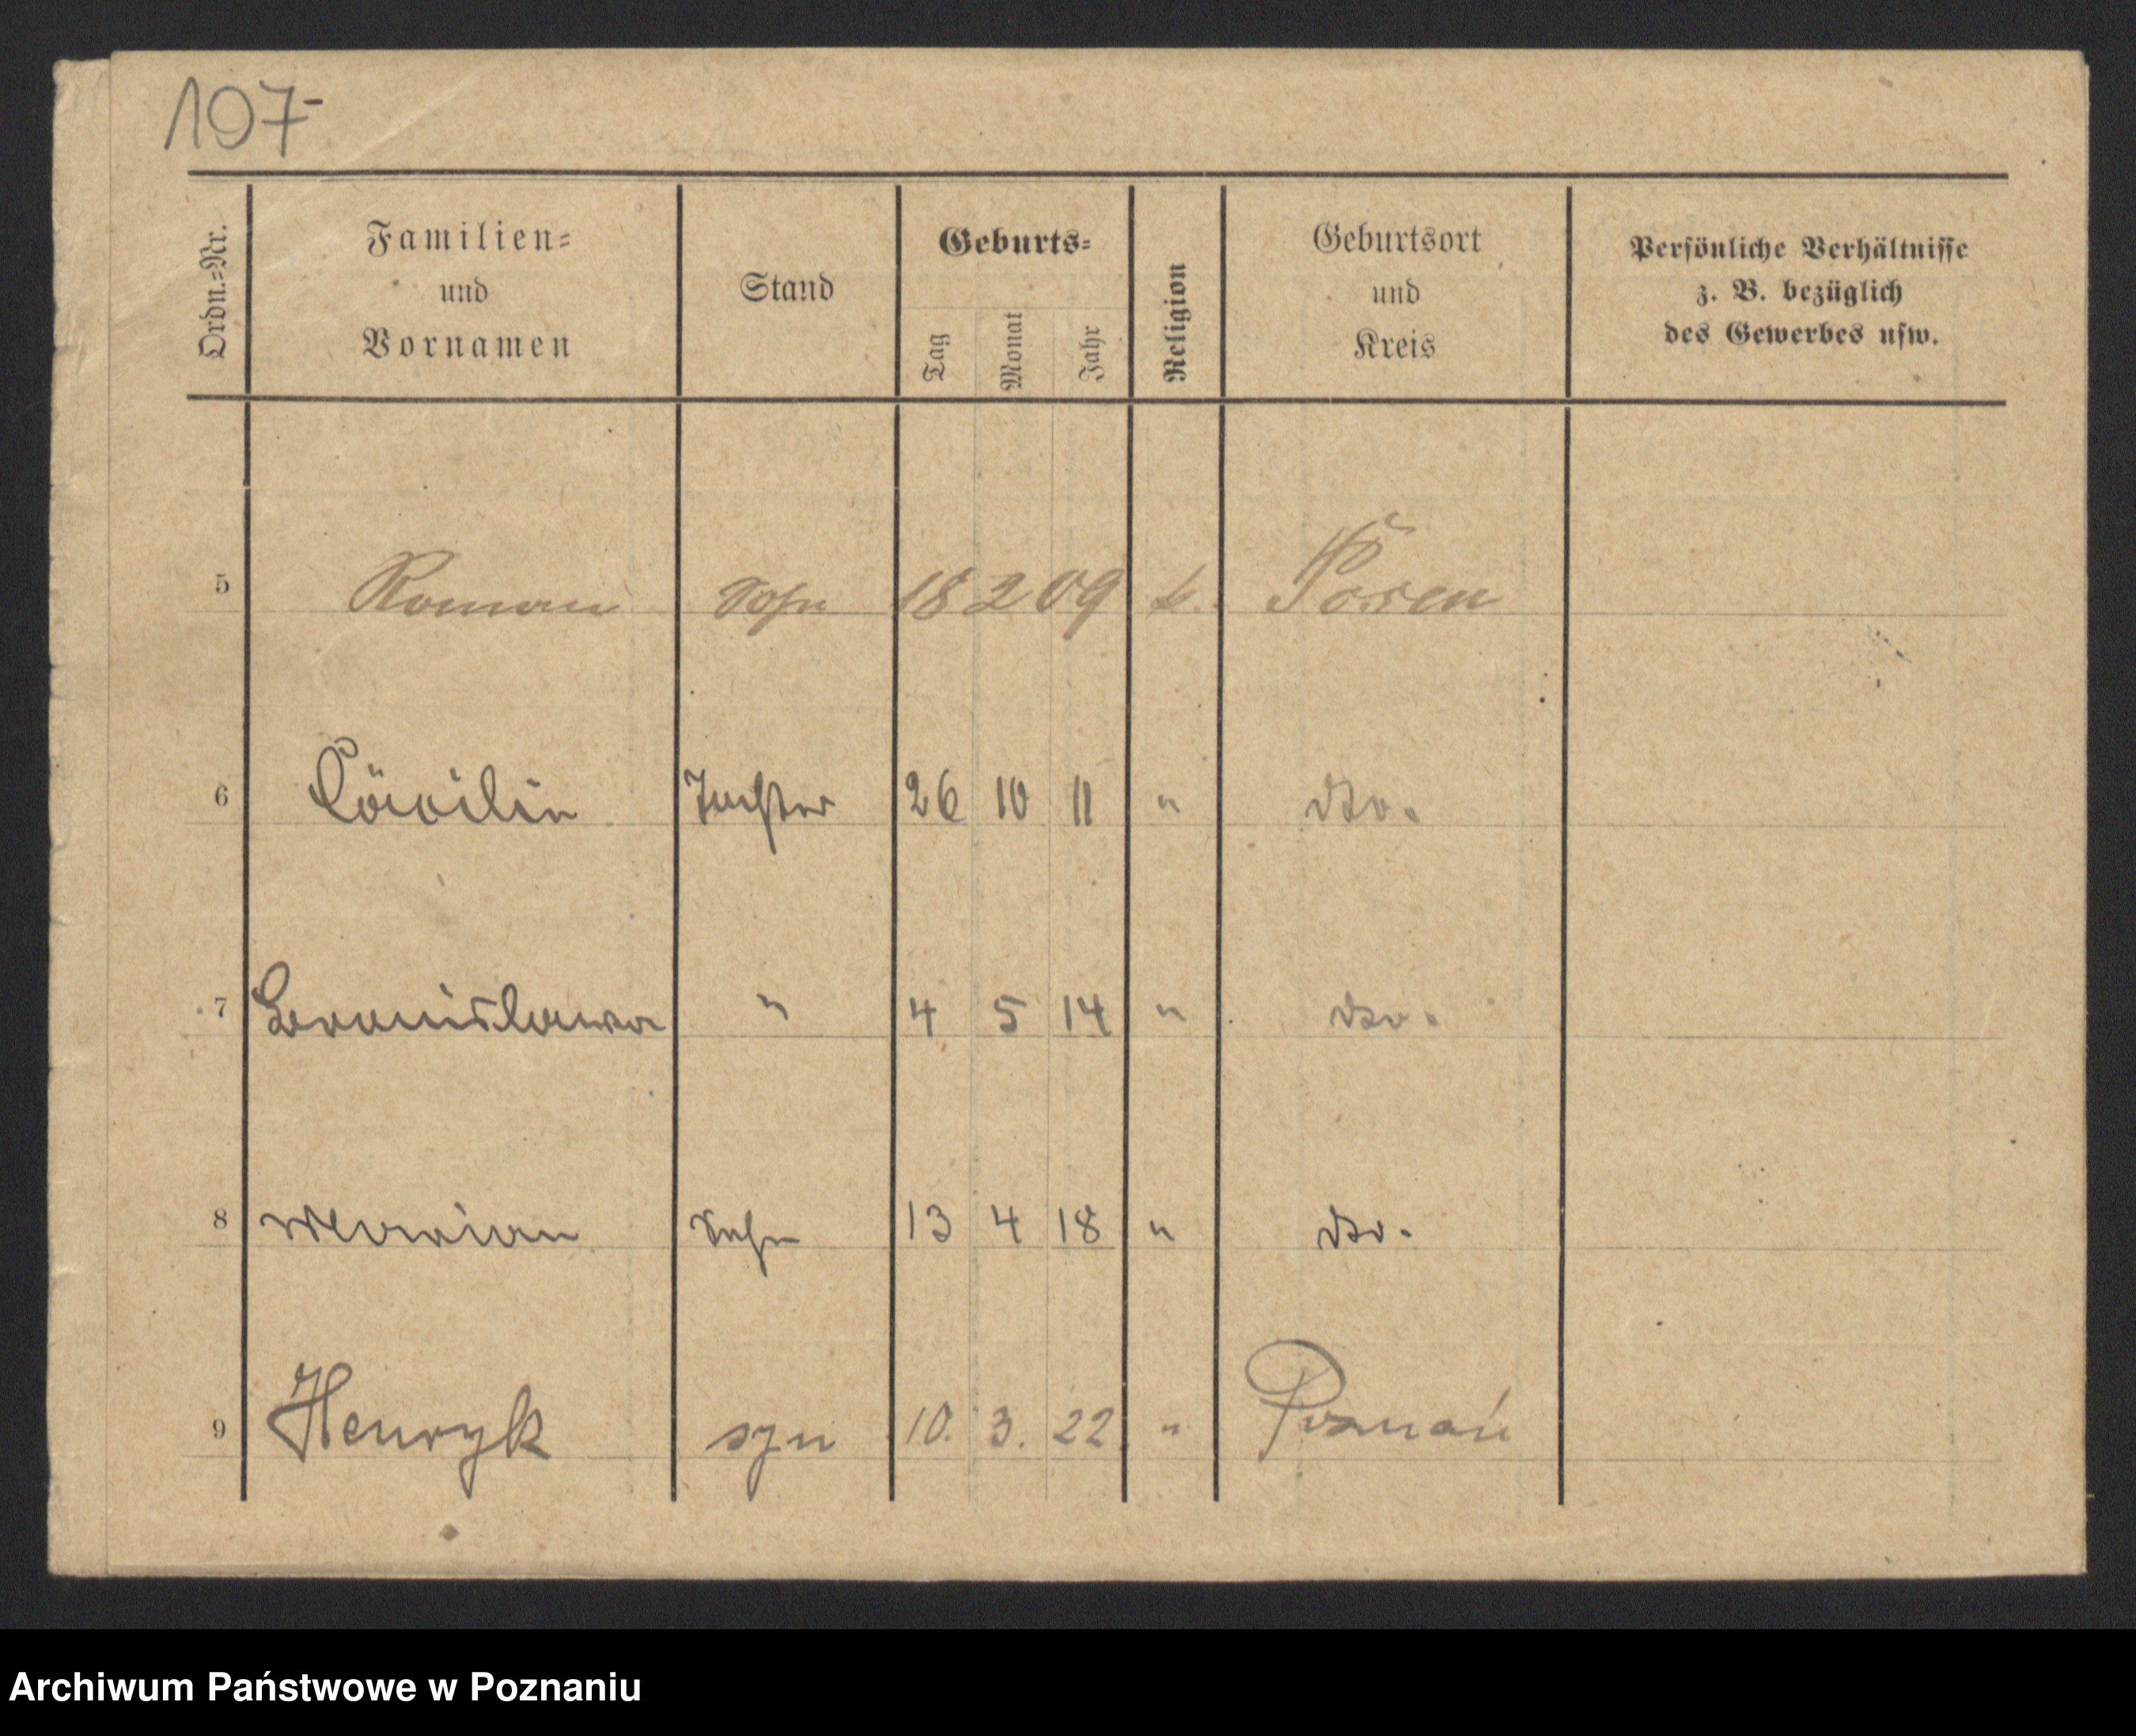 107-
Ordn.=Nr.
Familien=
und
Vornamen
Stand
Geburts=
Tag
Monat
Jahr
Religion
Geburtsort
und
Kreis
Persönliche Verhältnisse
z. B. bezüglich
des Gewerbes usw.
5 Roman Sohn 18 2 09 k. Posen
6 Cäcilie Tochter 26 10 11 " dto.
7 Bronislawa " 4 5 14 " dto.
8 Marian Sohn 13 4 18 " dto.
9 Henryk syn 10. 3. 22 " Poznań
Archiwum Państwowe w Poznaniu